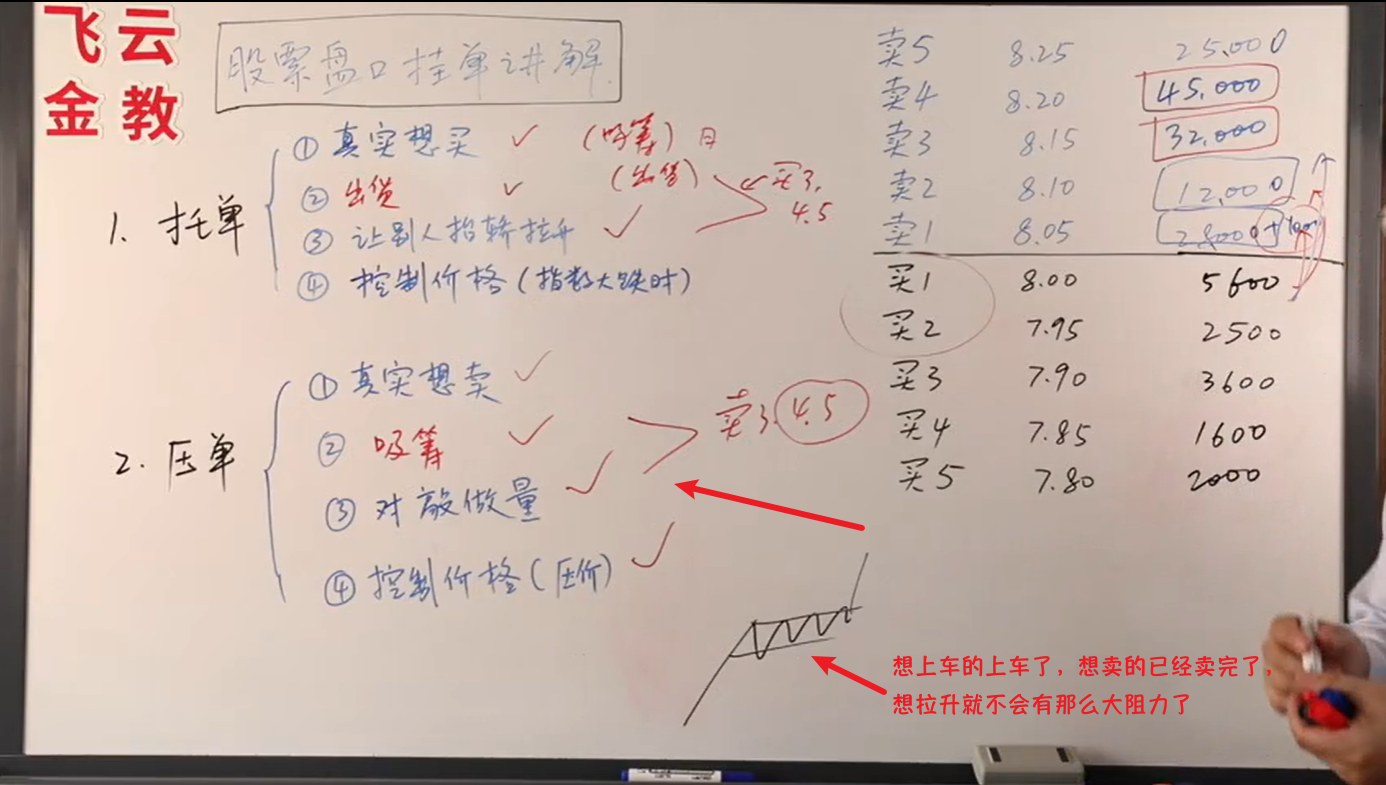 飞云
金教
股票盘口挂单讲解.
1. 托单
① 真实想买 ✓ (吸筹)
② 出货 ✓ (出货) 买3.
4.5
③ 让别人抬轿拉升 ✓
④ 控制价格(指数大跌时)
2. 压单
① 真实想卖 ✓
② 吸筹 ✓
卖3. 4.5
③ 对敲做量 ✓
④ 控制价格(压价) ✓
卖5 8.25 25,000
卖4 8.20 45,000
卖3 8.15 32,000
卖2 8.10 12,000
卖1 8.05
买1 8.00 5600
买2 7.95 2500
买3 7.90 3600
买4 7.85 1600
买5 7.80 2000
想上车的上车了，想卖的已经卖完了，
想拉升就不会有那么大阻力了